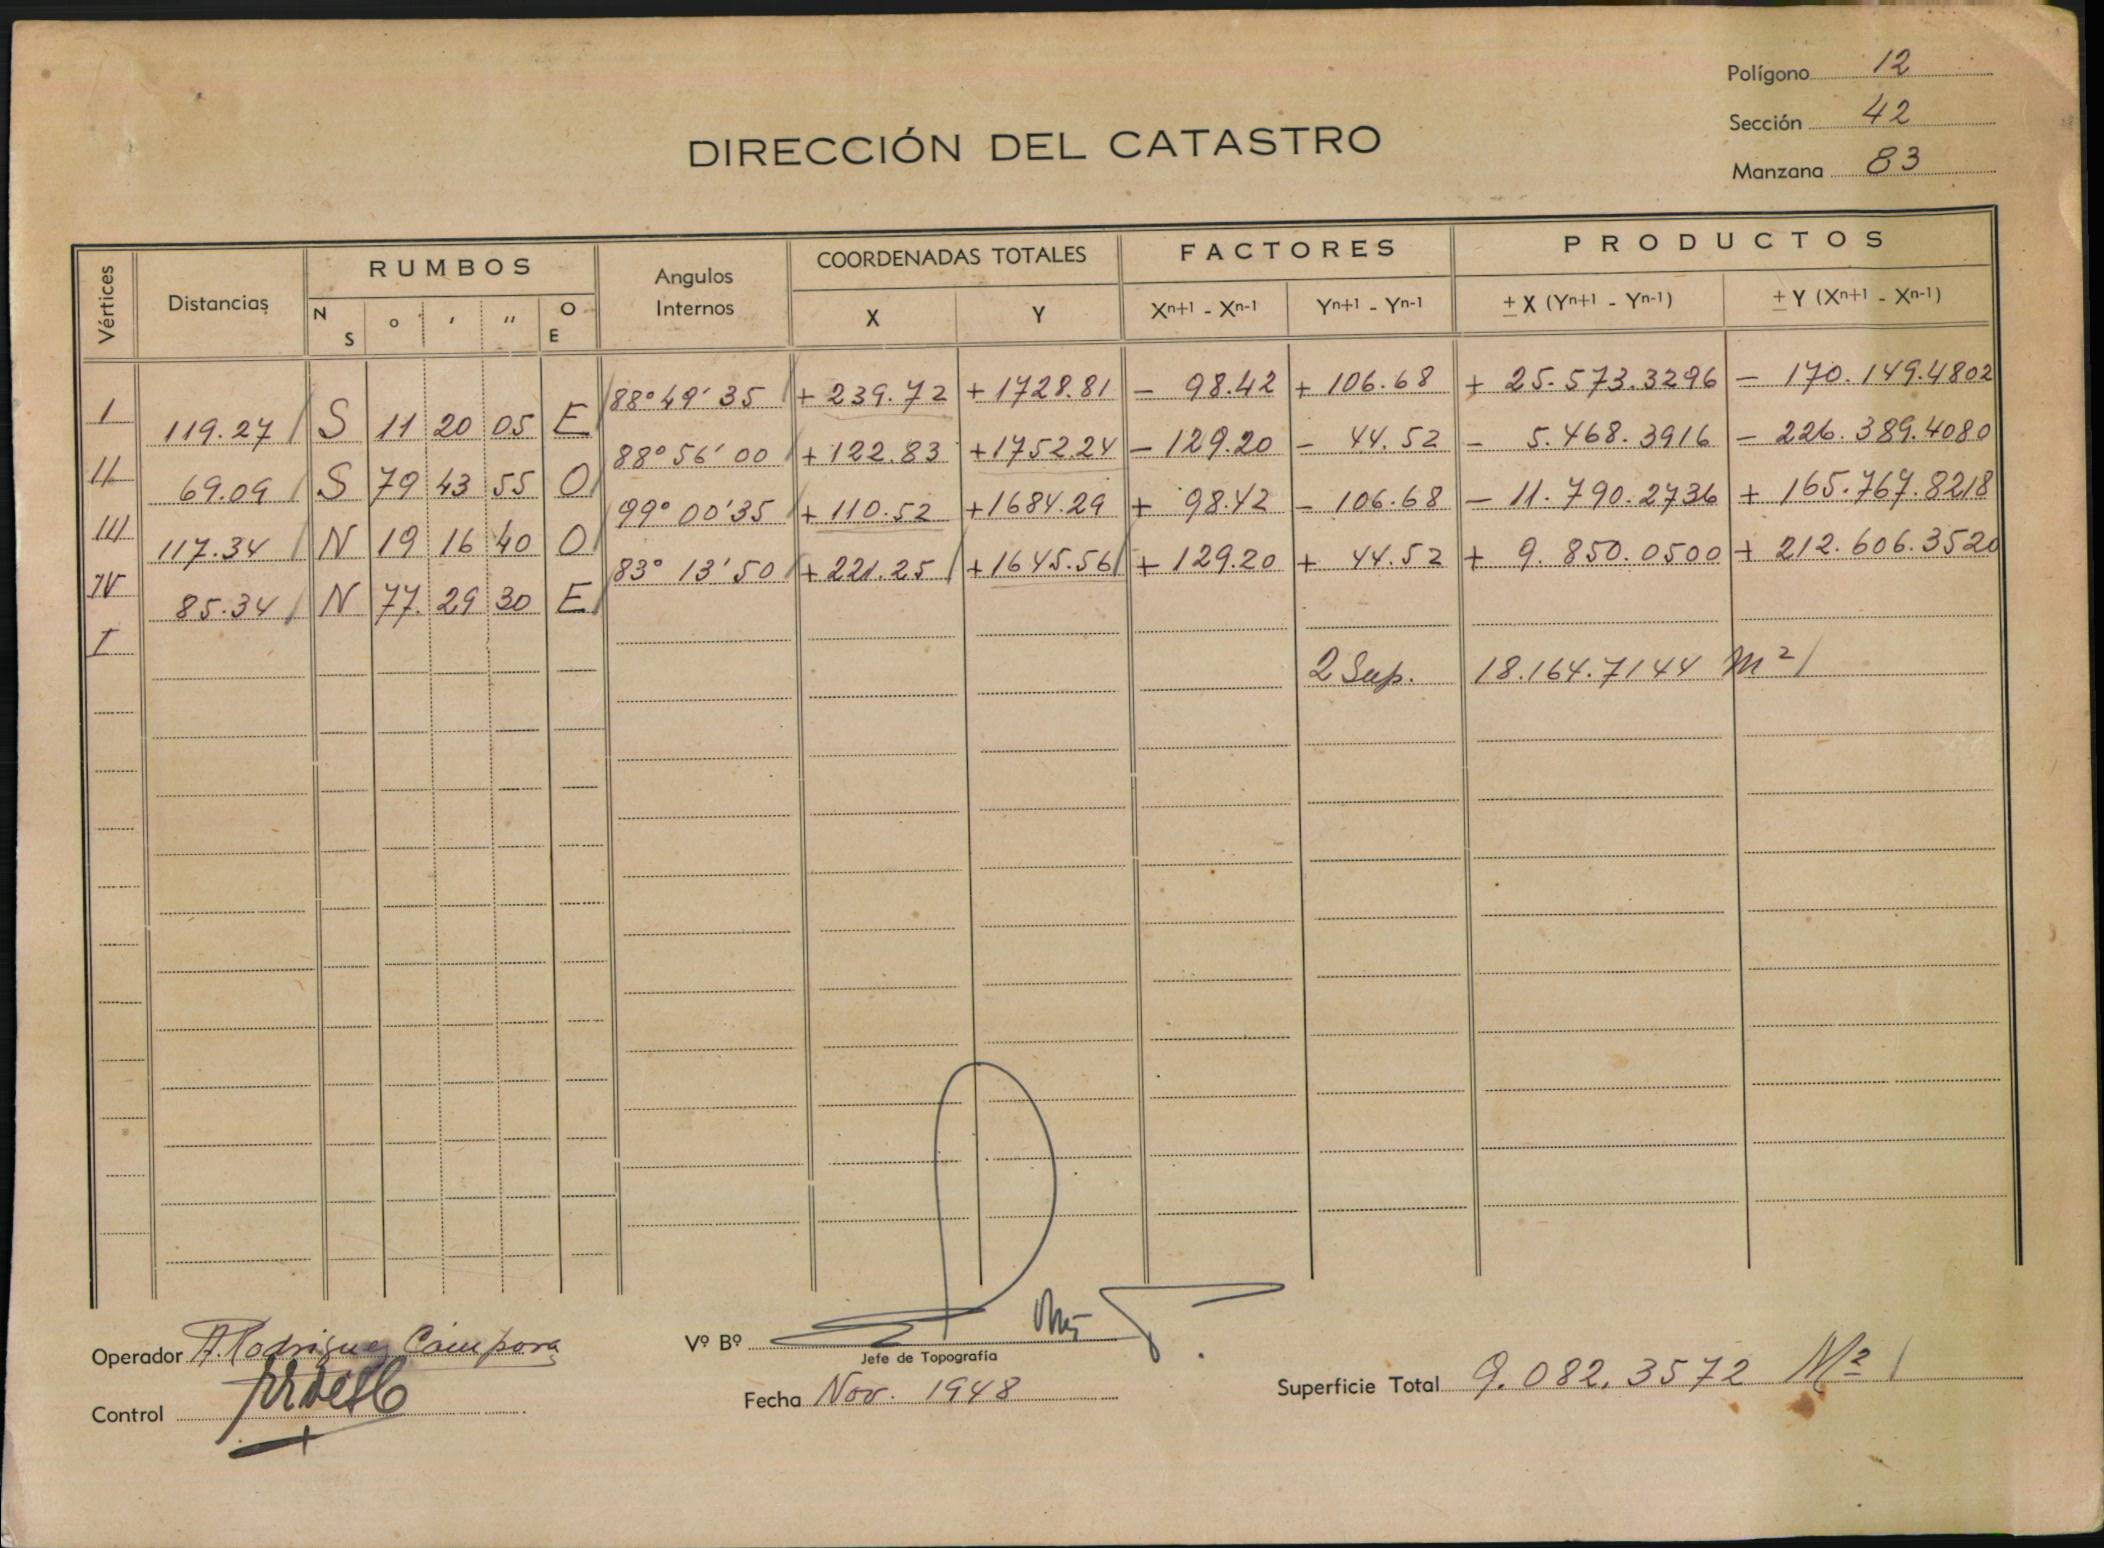 Polígono 12
Sección 42
Manzana 83
DIRECCIÓN DEL CATASTRO
Vértices Distancias RUMBOS Angulos Internos COORDENADAS TOTALES FACTORES PRODUCTOS
N S o ' '' O E X Y Xn+1 - Xn-1 Yn+1 - Yn-1 ± X (Yn+1 - Yn-1) ± Y (Xn+1 - Xn-1)
88° 49' 35 + 239.72 + 1728.81 - 98.42 + 106.68 + 25.573.3296 - 170.149.4802
I 119.27 S 11 20 05 E
88° 56' 00 + 122.83 + 1752.24 - 129.20 - 44.52 - 5.468.3916 - 226.389.4080
II 69.09 S 79 43 55 O
99° 00' 35 + 110.52 + 1684.29 + 98.42 - 106.68 - 11.790.2736 + 165.767.8218
III 117.34 N 19 16 40 O
83° 13' 50 + 221.25 + 1645.56 + 129.20 + 44.52 + 9.850.0500 + 212.606.3520
IV 85.34 N 77 29 30 E
I
2 Sup. 18.164.7144 m²
Operador A. Rodriguez Cámpora
Vº Bº
Jefe de Topografía
Control
Fecha Nov. 1948
Superficie Total 9.082.3572 M²